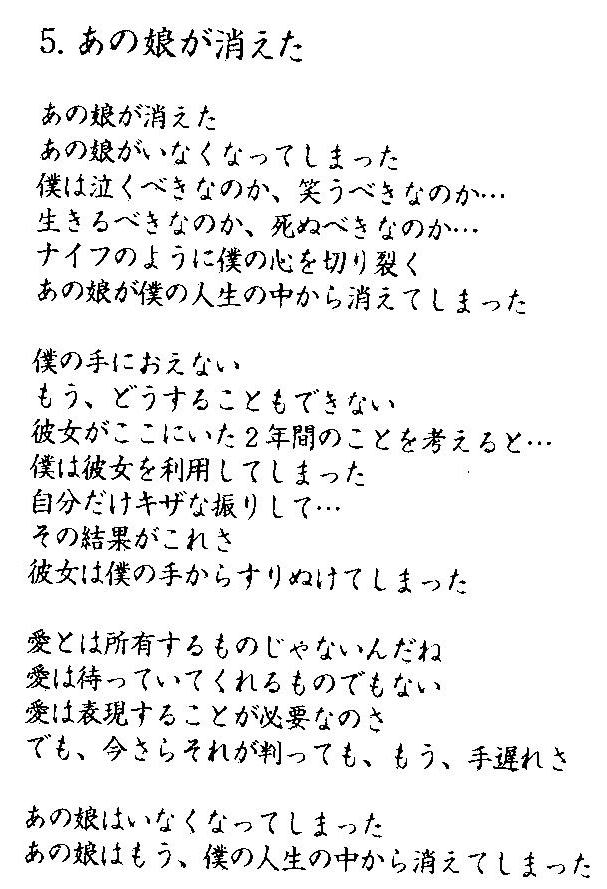 5. あの娘が消えた
あの娘が消えた
あの娘がいなくなってしまった
僕は泣くべきなのか、笑うべきなのか…
生きるべきなのか、死ぬべきなのか…
ナイフのように僕の心を切り裂く
あの娘が僕の人生の中から消えてしまった
僕の手におえない
もう、どうすることもできない
彼女がここにいた2年間のことを考えると…
僕は彼女を利用してしまった
自分だけキザな振りして…
その結果がこれさ
彼女は僕の手からすりぬけてしまった
愛とは所有するものじゃないんだね
愛は待っていてくれるものでもない
愛は表現することが必要なのさ
でも、今さらそれが判っても、もう、手遅れさ
あの娘はいなくなってしまった
あの娘はもう、僕の人生の中から消えてしまった